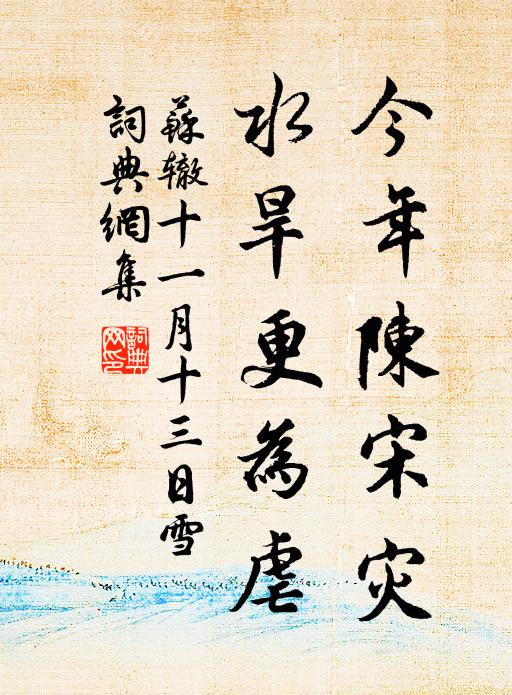 今年陳宋災
水旱更為虐
蘇辙十一月十三日雪
詞典網集
詞典網印